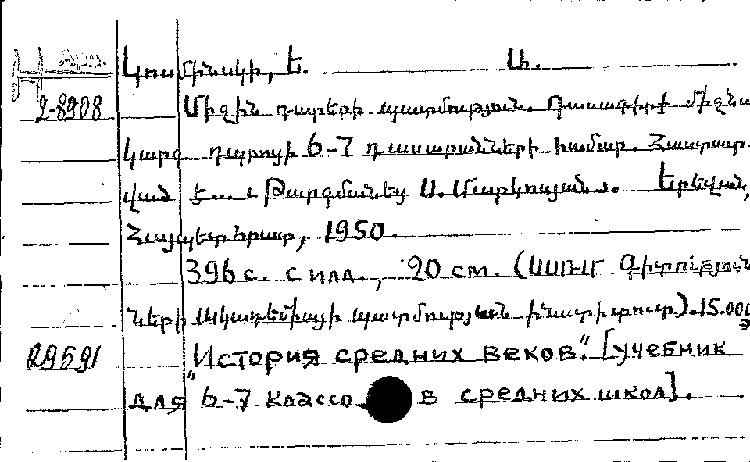 Կոսմինսկի, Ե. Ա.
2-8908 Միջին դարերի պատմություն. Դասագիրք միջնա
կարգ դպրոցի 6-7 դասարանների համար. Հաստատ-
ված է... Թարգմանեց Ս. Մարկոսյանը. Երևան,
Հայպետհրատ, 1950.
396 с. с илл., 20 см. (ՍՍՌՄ Գիտություն
ների Ակադեմիայի պատմության ինստիտուտ). 15.000
29591 "История средних веков". [учебник
для 6-7 классо в средних школ].